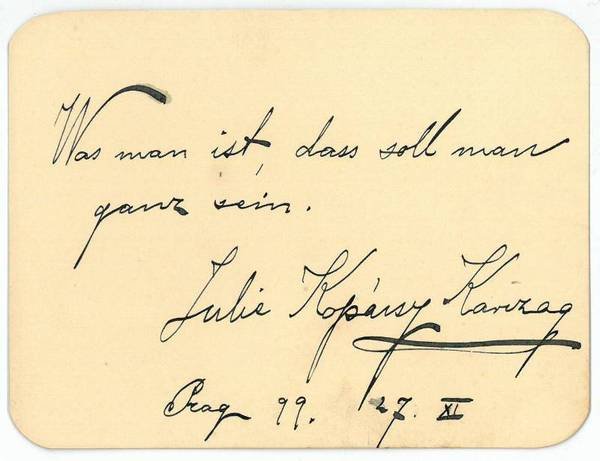 Was man ist, dass soll man
ganz sein.
Julie Kopácsy Karczag
Prag 99. 27. XI